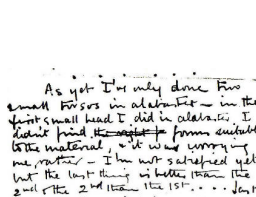 As yet I've only done two
small torsos in alabaster – in the
first small head I did in alabaster I
didn't find the right forms suitable
to the material, & it was worrying
me, rather – I'm not satisfied yet
but the last thing is better than the
2nd & the 2nd than the 1st ....